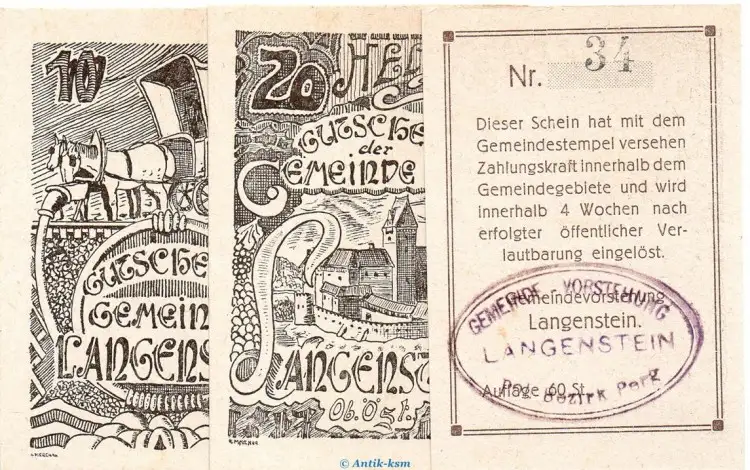 10
GUTSCHE
GEMEIN
LANGENS
20
HEL
GUTSCHE
der
GEMEINDE
LANGENST
Ob. Öst.
Nr. 34
Dieser Schein hat mit dem
Gemeindestempel versehen
Zahlungskraft innerhalb dem
Gemeindegebiete und wird
innerhalb 4 Wochen nach
erfolgter öffentlicher Ver-
lautbarung eingelöst.
Gemeindevorstehung
Langenstein.
Auflage 60 St.
GEMEINDE-VORSTEHUNG
LANGENSTEIN
Pol. Bezirk Perg
© Antik-ksm